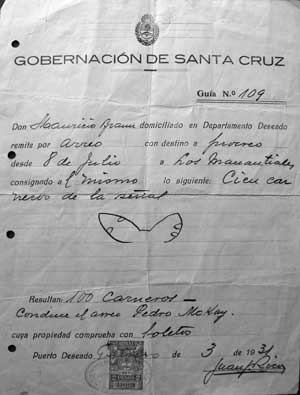 GOBERNACIÓN DE SANTA CRUZ
Guía N.º 109
Don Mauricio Braun domiciliado en Departamento Deseado
remite por Arreo con destino a
desde 8 de Julio a Los Manantiales
consignado a El mismo lo siguiente: Cien car
neros de la señal
Resultan: 100 Carneros —
Conduce el arreo Pedro McKay.
cuya propiedad comprueba con boleto
Puerto Deseado de 3 de 193